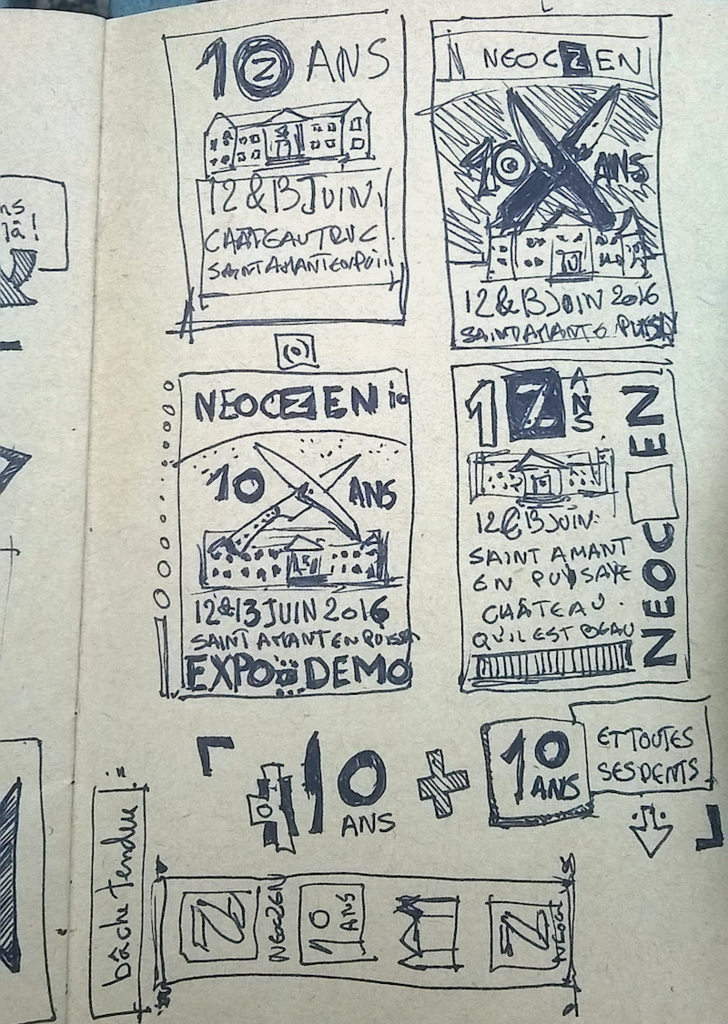 ns
là!
10 ANS
12 & 13 JUIN
CHATEAU TRUC
SAINT AMANT EN PUI...
NEOCZEN
10 ANS
12 & 13 JUIN 2016
SAINT AMANT
NEOCZEN
10 ANS
12 & 13 JUIN 2016
SAINT AMANT EN PUISA
EXPO DEMO
1Z ANS
NEOC EN
12 & 13 JUIN
SAINT AMANT
EN PUISAYE
CHÂTEAU
QU'IL EST BEAU
10
ANS
+
10
ANS
ET TOUTES
SES DENTS
bâche tendue :
Z
NEOCZEN
10
ANS
Z